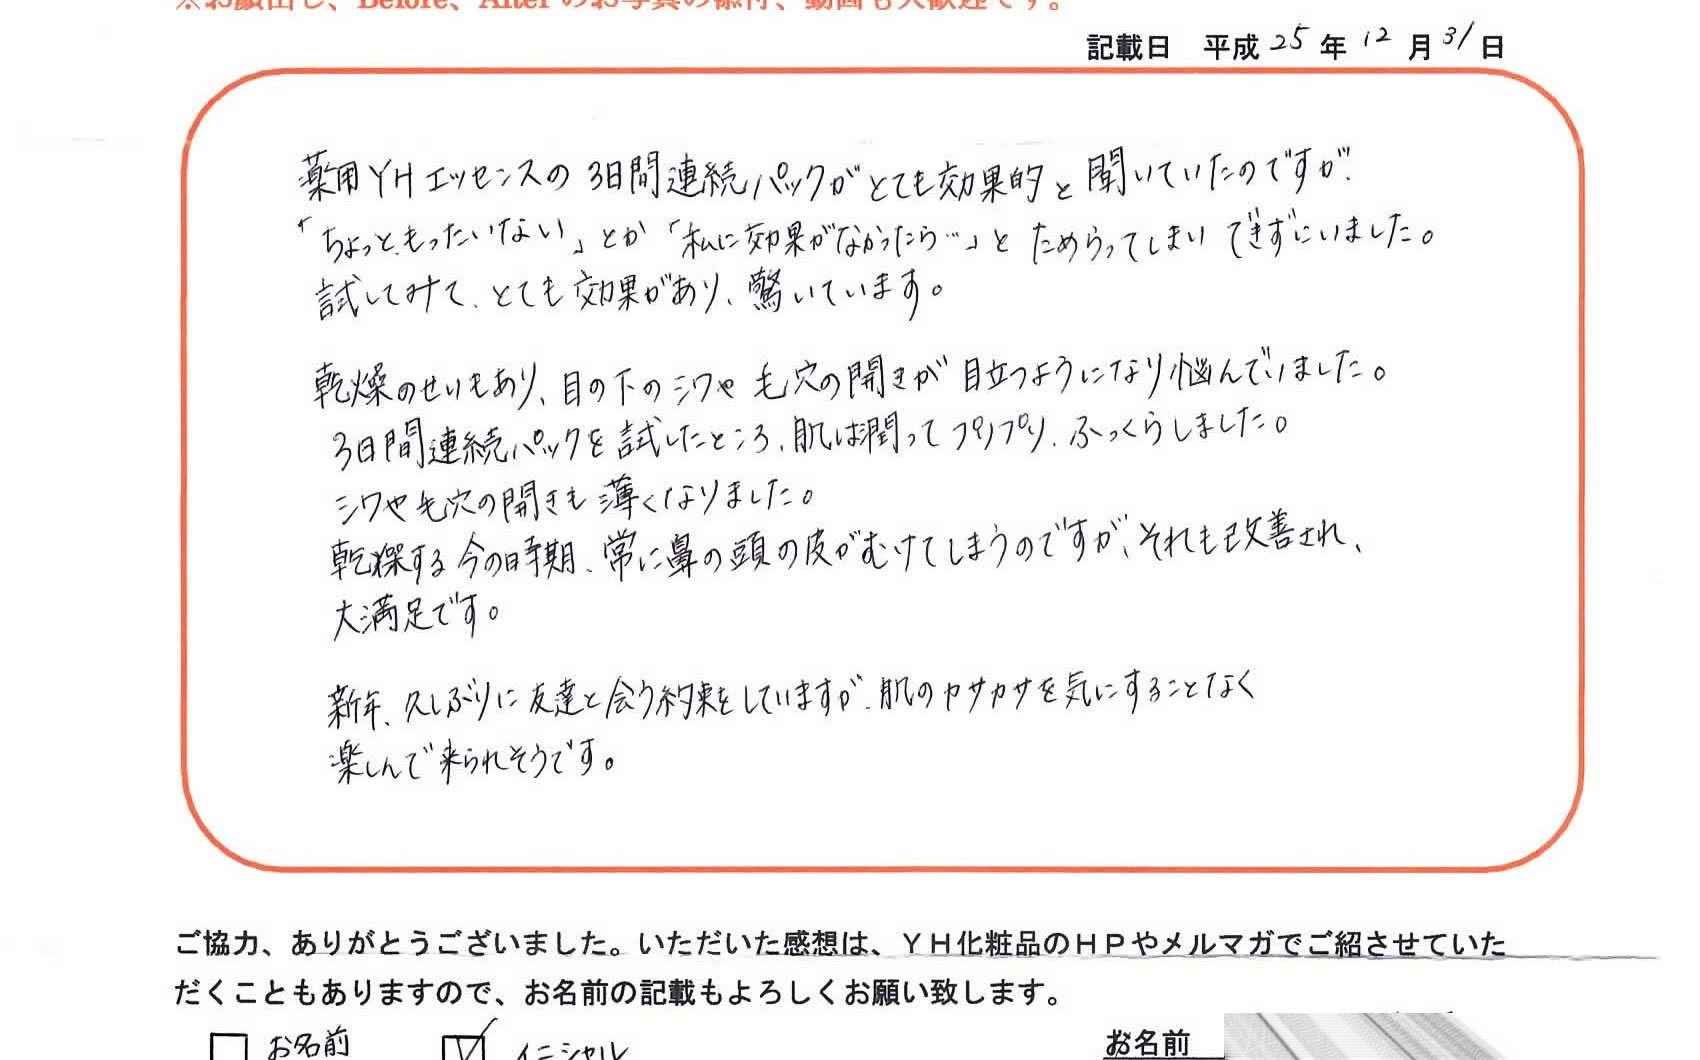 ※お顔出し、Before、Afterのお写真の添付、動画も大歓迎です。
記載日 平成25年12月31日
薬用YHエッセンスの3日間連続パックがとても効果的と聞いていたのですが、
「ちょっともったいない」とか「私に効果がなかったら…」とためらってしまいできずにいました。
試してみて、とても効果があり、驚いています。
乾燥のせいもあり、目の下のシワや毛穴の開きが目立つようになり悩んでいました。
3日間連続パックを試したところ、肌は潤ってプリプリ、ふっくらしました。
シワや毛穴の開きも薄くなりました。
乾燥する今の時期、常に鼻の頭の皮がむけてしまうのですが、それも改善され、
大満足です。
新年、久しぶりに友達と会う約束をしていますが、肌のカサカサを気にすることなく
楽しんで来られそうです。
ご協力、ありがとうございました。いただいた感想は、YH化粧品のHPやメルマガでご紹させていた
だくこともありますので、お名前の記載もよろしくお願い致します。
お名前 イニシャル お名前